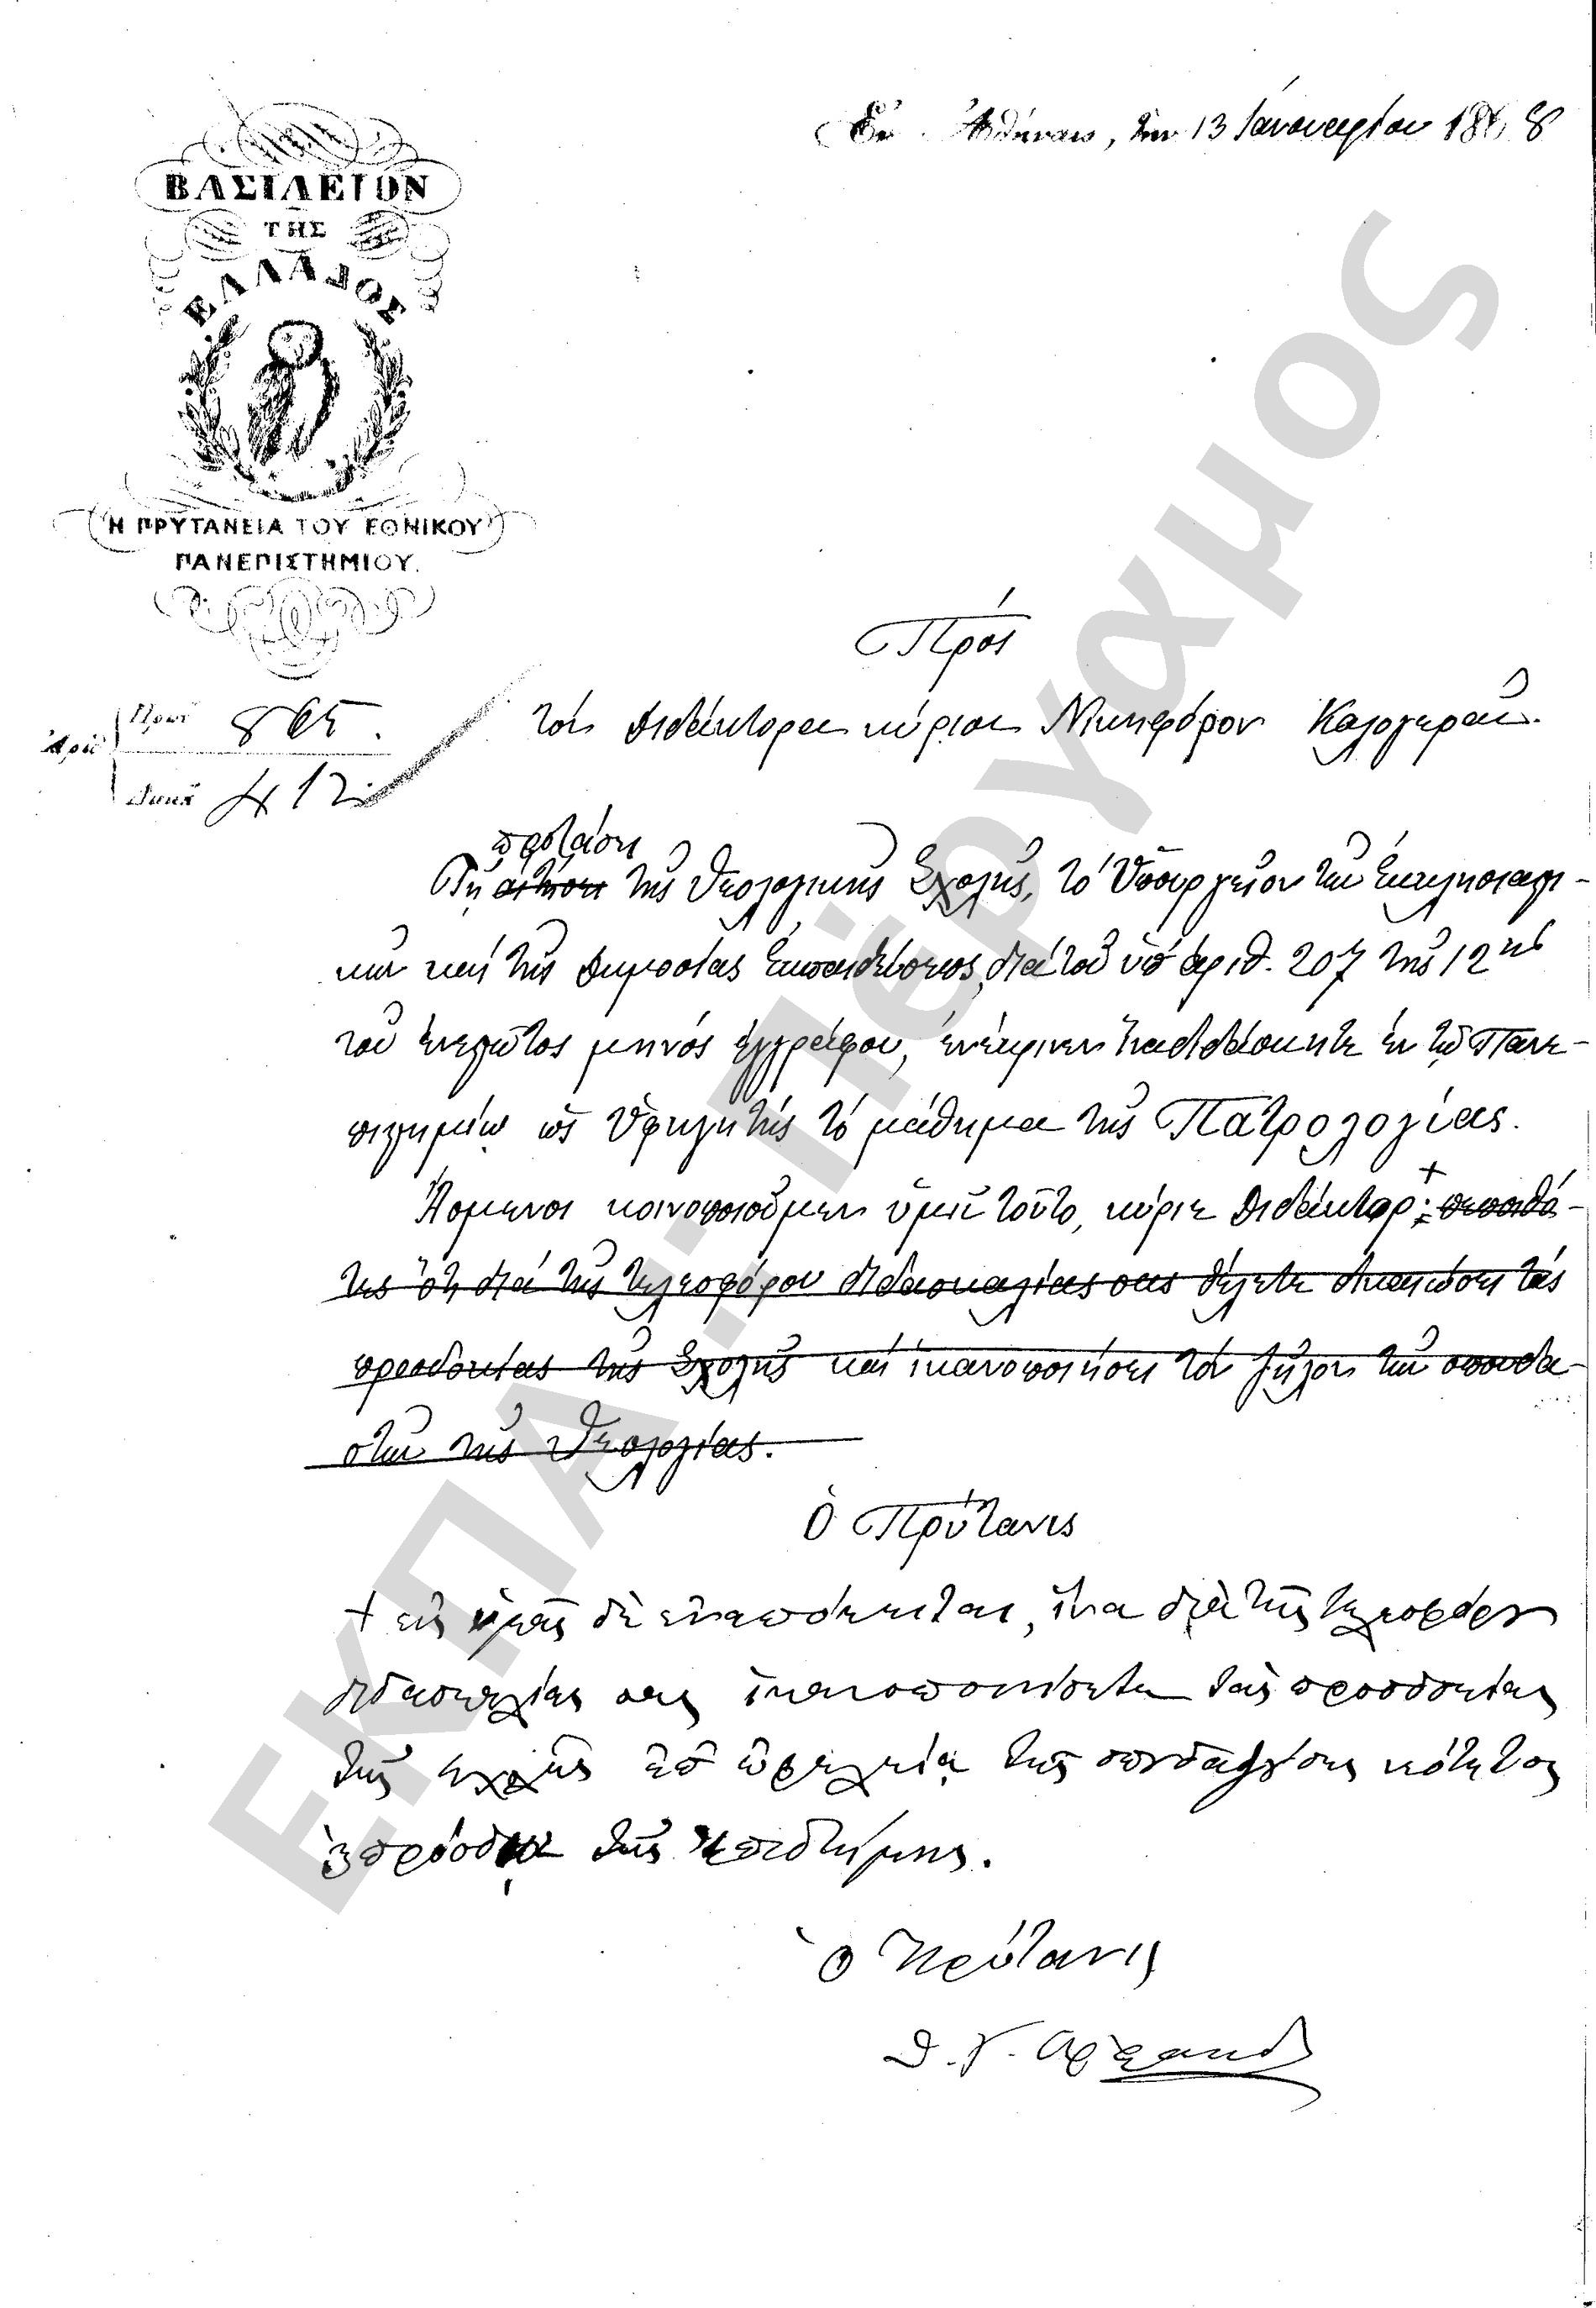 Ἐν Ἀθήναις, τὴν 13 Ἰανουαρίου 1868
ΒΑΣΙΛΕΙΟΝ
ΤΗΣ
ΕΛΛΑΔΟΣ
Η ΠΡΥΤΑΝΕΙΑ ΤΟΥ ΕΘΝΙΚΟΥ
ΠΑΝΕΠΙΣΤΗΜΙΟΥ.
Πρὸς
Πρωτ 865.
Ἀριθ
τὸν διδάκτορα κύριον Νικηφόρον Καλογερᾶν.
412
προτάσει
Τῇ αἰτήσει τῆς Θεολογικῆς Σχολῆς, τὸ Ὑπουργεῖον τῶν Ἐκκλησιαστι-
κῶν καὶ τῆς δημοσίας Ἐκπαιδεύσεως, διὰ τοῦ ὑπ' ἀριθ. 207 τῆς 12ης
τοῦ ἐνεστῶτος μηνὸς ἐγγράφου, ἐνέκρινεν ἵνα διδάσκητε ἐν τῷ Πανε-
πιστημίῳ ὡς Ὑφηγητὴς τὸ μάθημα τῆς Πατρολογίας.
Ἀσμενοι κοινοποιοῦμεν ὑμῖν τοῦτο, κύριε διδάκτορ + πεποιθό-
τες ὅτι διὰ τῆς τελεσφόρου διδασκαλίας σας θέλετε δικαιώσει τὰς
προσδοκίας τῆς Σχολῆς καὶ ἱκανοποιήσει τὸν ζῆλον τῶν σπουδα-
στῶν τῆς Θεολογίας.
Ὁ Πρύτανις
+ εἰς ὑμᾶς δὲ ἐναπόκειται, ἵνα διὰ τῆς τελεσφόρου
διδασκαλίας σας ἱκανοποιήσητε τὰς προσδοκίας
τῆς Σχολῆς ἐπ' ὠφελείᾳ τῆς σπουδαζούσης νεότητος
πρόοδον τῆς ἐπιστήμης.
ὁ Πρύτανις
Θ. Γ.
ΕΚΠΑ:: Πέργαμος